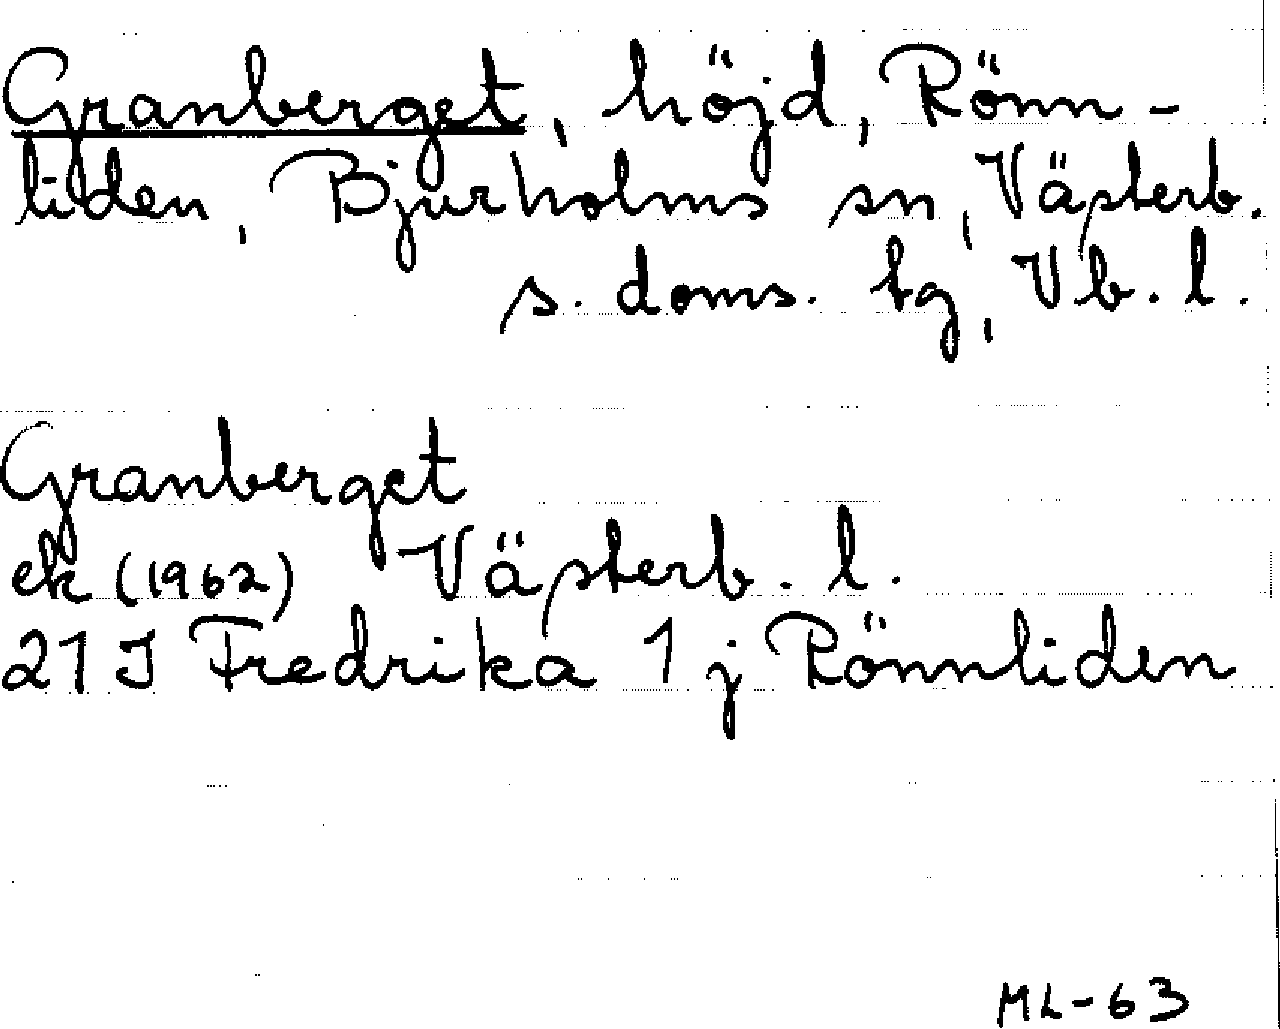 Granberget, höjd, Rönn-
liden, Bjurholms sn, Västerb.
s. doms. tg, Vb. l.
Granberget
ek (1962) Västerb. l.
21 J Fredrika 1 j Rönnliden
ML-63